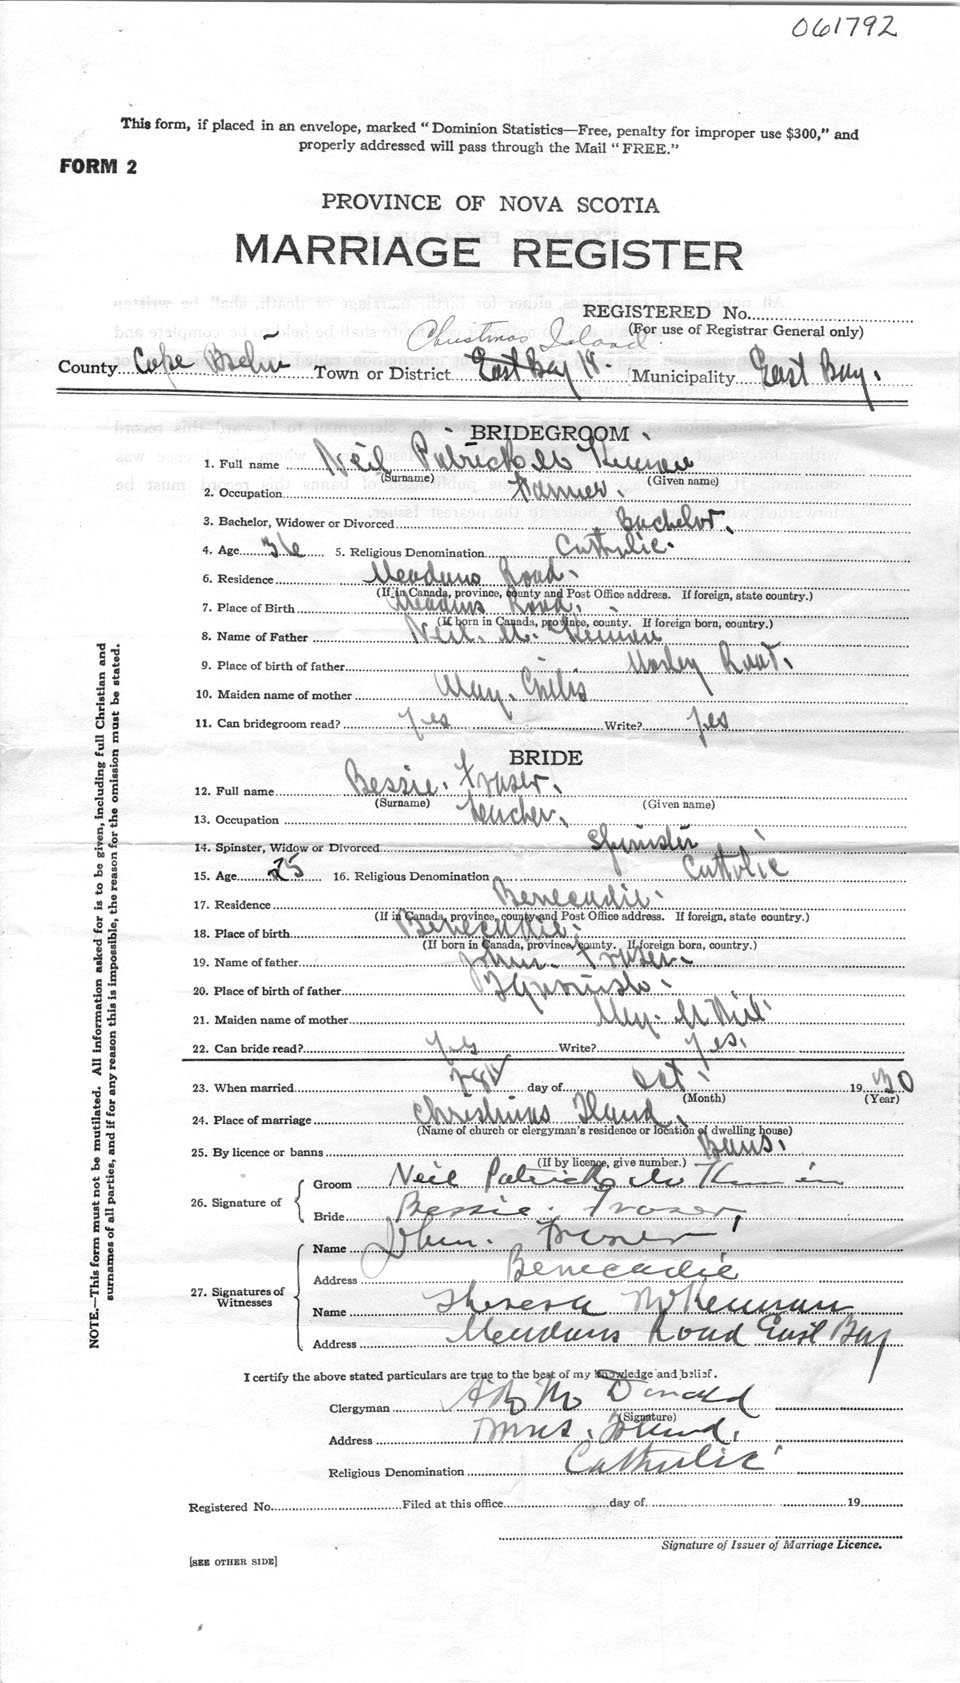 061792
This form, if placed in an envelope, marked "Dominion Statistics—Free, penalty for improper use $300," and
properly addressed will pass through the Mail "FREE."
FORM 2
PROVINCE OF NOVA SCOTIA
MARRIAGE REGISTER
REGISTERED No.
(For use of Registrar General only)
Christmas Island
County Cape Breton Town or District East Bay Municipality East Bay.
BRIDEGROOM
1. Full name Neil Patrick
(Surname) (Given name)
2. Occupation Farmer.
3. Bachelor, Widower or Divorced Bachelor.
4. Age 36 5. Religious Denomination Catholic.
6. Residence Meadows Road.
(If in Canada, province, county and Post Office address. If foreign, state country.)
7. Place of Birth Meadows Road.
(If born in Canada, province, county. If foreign born, country.)
8. Name of Father Neil
9. Place of birth of father Road.
10. Maiden name of mother May.
11. Can bridegroom read? yes Write? yes
BRIDE
12. Full name Bessie. Fraser.
(Surname) (Given name)
13. Occupation teacher.
14. Spinster, Widow or Divorced Spinster
15. Age 25 16. Religious Denomination Catholic
17. Residence Benecadie.
(If in Canada, province, county and Post Office address. If foreign, state country.)
18. Place of birth Benecadie.
(If born in Canada, province, county. If foreign born, country.)
19. Name of father John. Fraser.
20. Place of birth of father
21. Maiden name of mother
22. Can bride read? yes Write? yes.
23. When married day of Oct. 1930
(Month) (Year)
24. Place of marriage Christmas Island.
(Name of church or clergyman's residence or location of dwelling house)
25. By licence or banns Bans.
(If by licence, give number.)
26. Signature of
Groom Neil Patrick
Bride Bessie. Fraser,
27. Signatures of Witnesses
Name John. Fraser
Address Benecadie
Name Theresa McKennan
Address Meadows Road East Bay
I certify the above stated particulars are true to the best of my knowledge and belief.
Clergyman McDonald
(Signature)
Address Xmas. Island.
Religious Denomination Catholic
Registered No. Filed at this office day of 19
Signature of Issuer of Marriage Licence.
[SEE OTHER SIDE]
NOTE.—This form must not be mutilated. All information asked for is to be given, including full Christian and
surnames of all parties, and if for any reason this is impossible, the reason for the omission must be stated.